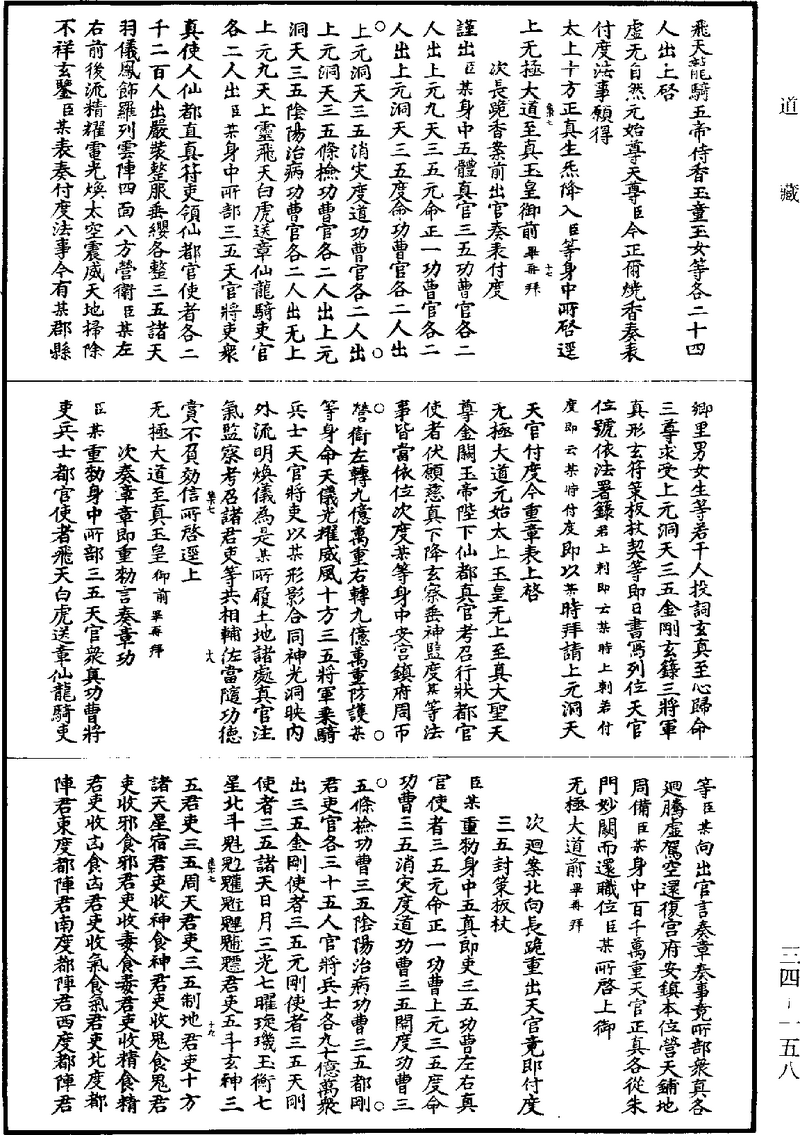 道藏
飛天龍騎五帝侍香玉童玉女等各二十四
人出上啓
虛无自然元始尊天尊臣今正爾燒香奏表
付度法事願得
太上十方正真生炁降入臣等身中所啓逕
上无極大道至真玉皇御前畢再拜
次長跪香案前出官奏表付度
謹出臣某身中五體真官三五功曹官各二
人出上元九天三五元命正一功曹官各二
人出上元洞天三五度命功曹官各二人出
上元洞天三五消灾度道功曹官各二人出
上元洞天三五條檢功曹官各二人出上元
洞天三五陰陽治病功曹官各二人出无上
上元九天上靈飛天白虎送章仙龍騎吏官
各二人出臣某身中所部三五天官將吏衆
真使人仙都直真符吏領仙都官使者各二
千二百人出嚴裝整服垂纓各整三五諸天
羽儀鳳飾羅列雲陣四面八方營衛臣某左
右前後流精耀電光煥太空震威天地掃除
不祥玄鑒臣某表奏付度法事今有某郡縣
鄉里男女生等若干人投詞玄真至心歸命
三尊求受上元洞天三五金剛玄籙三將軍
真形玄符策板杖契等即日書寫列位天官
位號依法署籙若上刺即云某時上刺若付
度即云某時付度即以某時拜請上元洞天
天官付度今重章表上啓
无極大道元始太上玉皇无上至真大聖天
尊金闕玉帝陛下仙都真官考召行狀都官
使者伏願慈真下降玄察垂神監度某等法
事皆當依位次度某等身中安宫鎮府周帀
營衛左轉九億萬重右轉九億萬重防護某
等身命天儀光耀威風十方三五將軍乘騎
兵士天官將吏以某形影合同神光洞映内
外流明煥儀為是某所履土地諸處真官注
氣監察考召諸君吏等共相輔佐當隨功德
賞不負効信所啓逕上
无極大道至真玉皇御前畢再拜
次奏章章即重勑言奏章功
臣某重勑身中所部三五天官衆真功曹將
吏兵士都官使者飛天白虎送章仙龍騎吏
等臣某向出官言奏章奏事竟所部衆真各
迴騰虛駕空還復宫府安鎮本位營天鋪地
周備臣某身中百千萬重天官正真各從朱
門妙闕而還職位臣某所啓上御
无極大道前畢再拜
次迴案北向長跪重出天官竟即付度
三五封策板杖
臣某重勑身中五真即吏三五功曹左右真
官使者三五元命正一功曹上元三五度命
功曹三五消灾度道功曹三五開度功曹三
五條檢功曹三五陰陽治病功曹三五都剛
君吏官各三十五人官將兵士各九十億萬衆
出三五金剛使者三五元剛使者三五天剛
使者三五諸天日月三光七曜琁璣玉衡七
星北斗魁𩲃䰢魓䰫魒君吏五斗玄神三
五君吏三五周天君吏三五制地君吏十方
諸天星宿君吏收神食神君吏收鬼食鬼君
吏收邪食邪君吏收毒食毒君吏收精食精
君吏收凶食凶君吏收氣食氣君吏北度都
陣君東度都陣君南度都陣君西度都陣君
三四-一五八